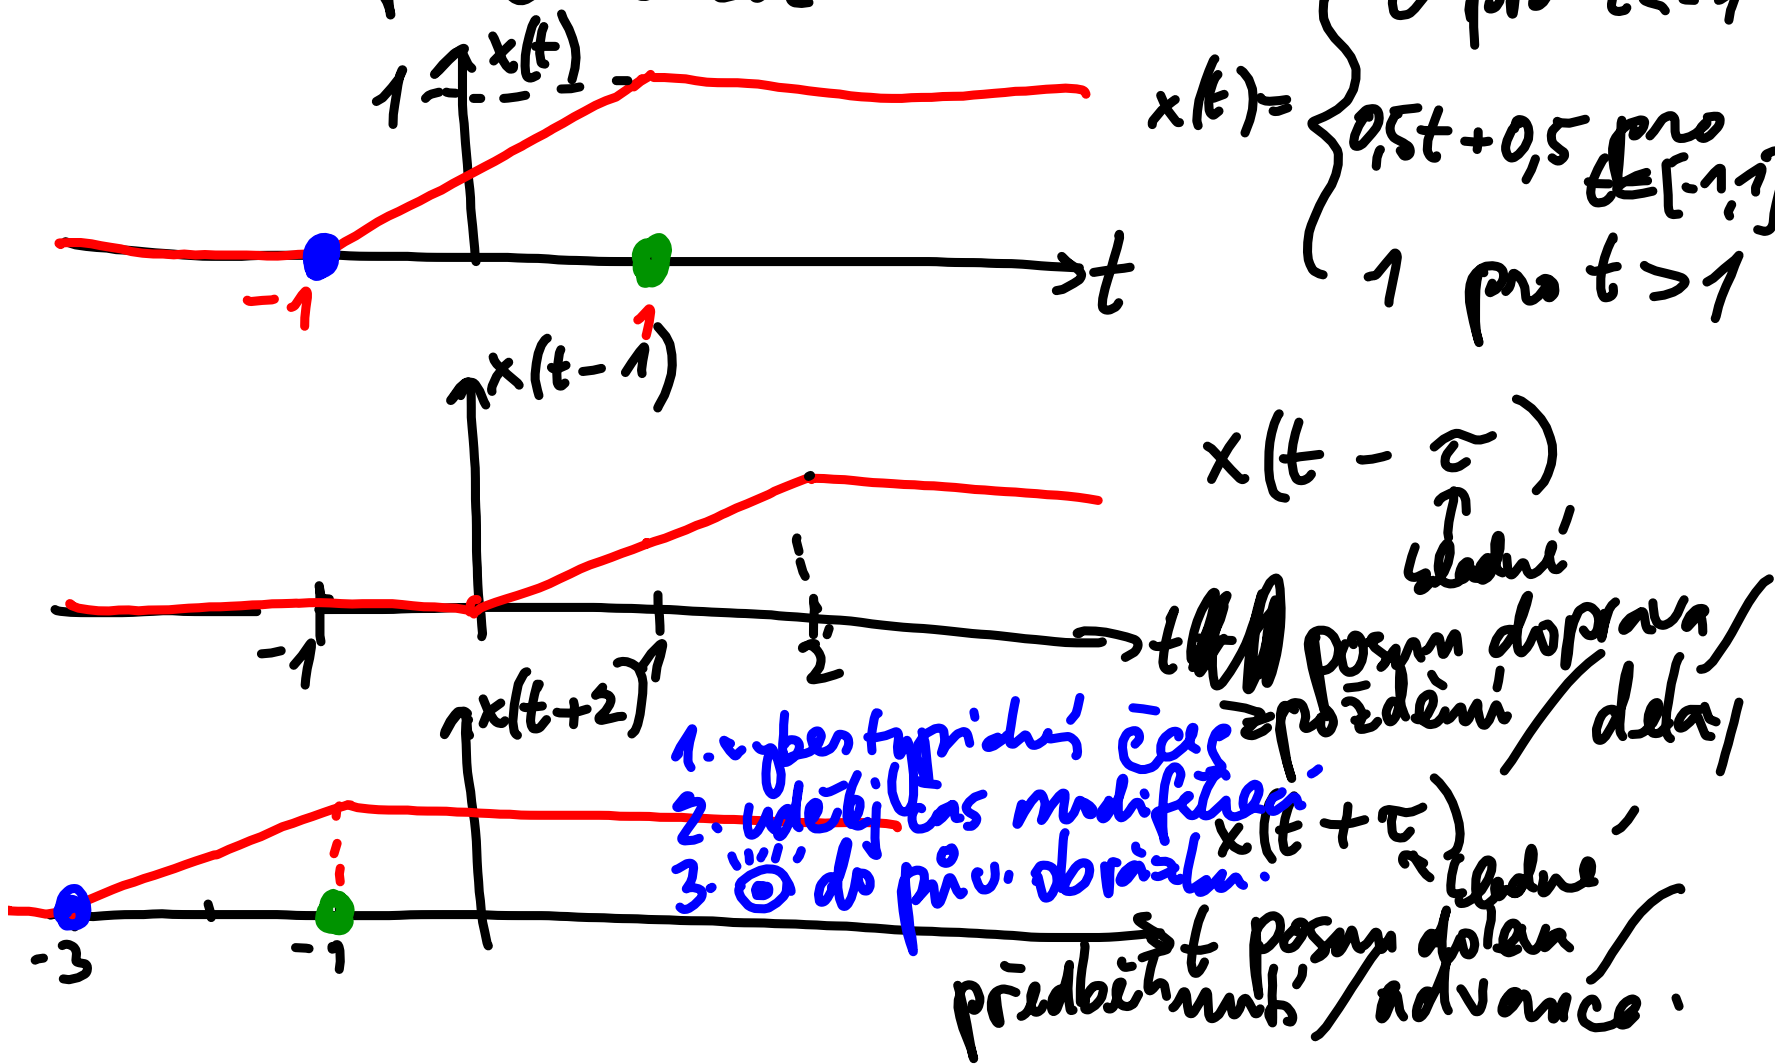 0 pro t<-1
x(t)
1
x(t)=
0,5t+0,5 pro
t∈[-1,1]
1 pro t>1
t
-1
1
x(t-1)
x(t - τ)
↑
kladné
t
posun doprava /
-1
1
2
= zpoždění / delay
x(t+2)
1. vyber typický čas
2. udělej čas modifikaci
3. do pův. obrázku.
x(t + τ)
kladné
t
posun doleva /
-3
-1
předběhnutí / advance.